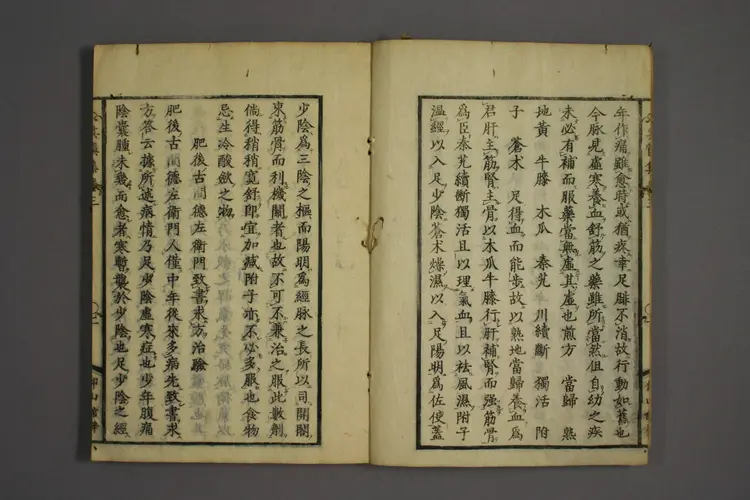 年作痛雖愈時或猶疾幸足腓不消故行動如舊也
今脉見虛寒養血舒筋之藥雖所當然但自幼之疾
未必有補而服藥當無虛其虛也煎方　當歸　熟
地黄　牛膝　木瓜　秦艽　川續斷　獨活　附
子　蒼术　足得血而能步故以熟地當歸養血爲
君肝主筋腎主骨以木瓜牛膝行肝補腎而强筋骨
爲臣秦艽續斷獨活且以理氣血且以祛風濕附子
温經以入足少陰蒼术燥濕以入足陽明爲佐使蓋
少陰爲三陰之樞而陽明爲經脉之長所以司開闔
束筋骨而利機關者也故不可不兼治之服此數劑
倘得稍稍寬舒即宜加减附子亦不必多服也食物
忌生冷酸歛之物
肥後古閭德左衛門致書求方治驗
肥後古閭德左衛門人僅中年後來多病先致書求
方答云據所述病情乃足少陰虛寒症也少年腹痛
陰囊腫未幾而愈者寒暫襲於少陰也足少陰之經